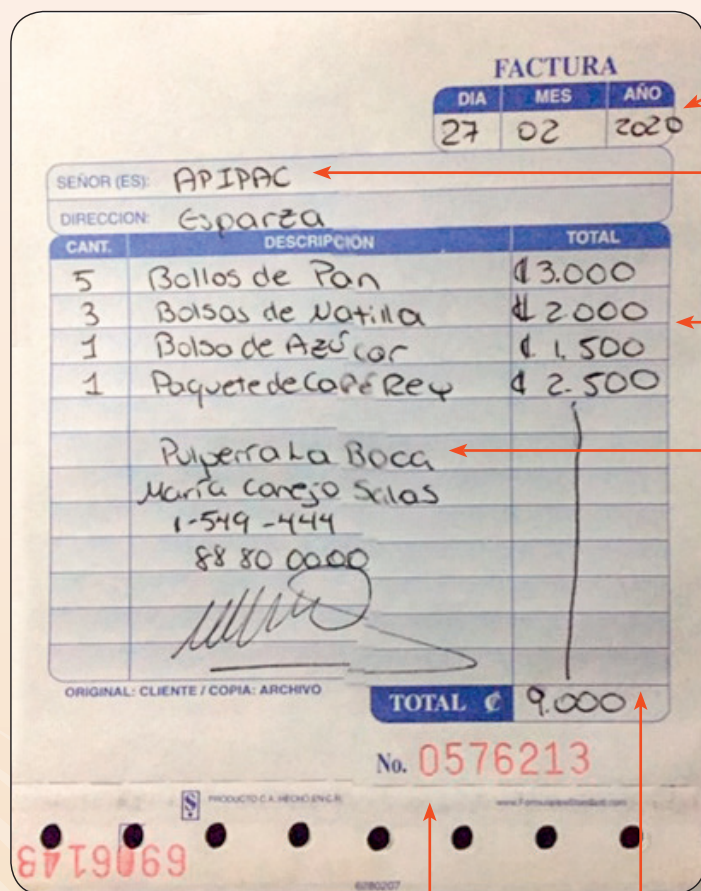 FACTURA
DIA MES AÑO
27 02 2020
SEÑOR (ES): APIPAC
DIRECCION: Esparza
CANT. DESCRIPCION TOTAL
5 Bollos de Pan ₡ 3.000
3 Bolsas de Natilla ₡ 2.000
1 Bolsa de Azúcar ₡ 1.500
1 Paquete de Café Rey ₡ 2.500
Pulpería La Boca
María Conejo Salas
1-549-444
88 80 0000
ORIGINAL: CLIENTE / COPIA: ARCHIVO
TOTAL ₡ 9.000
No. 0576213
PRODUCTO C.A. HECHO EN C.R.
6280207